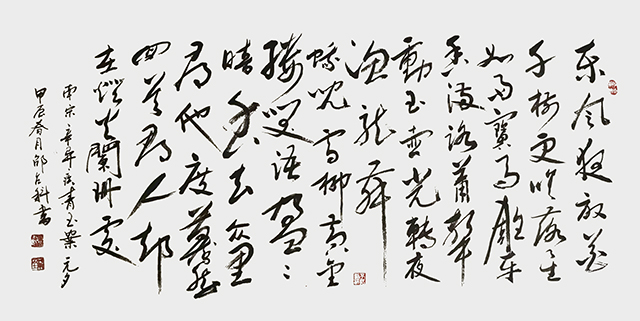 东风夜放花
千树更吹落星
如雨寶马雕车
香满路萧聲
動玉壶光轉夜
渔龙舞
蛾兒雪柳黄金
缕笑语盈〻
暗香去众里
寻他度蓦然
回首那人却
在燈火闌珊处
南宋辛弃疾青玉案元夕
甲辰春月邵占科書